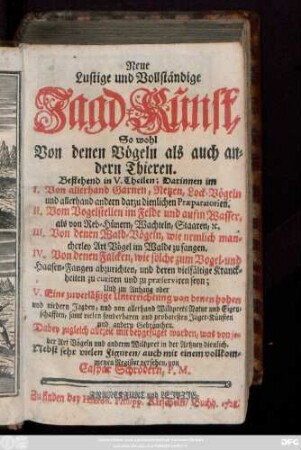 Neue
Lustige und Vollständige
Jagd-Kunst,
So wohl
Von denen Vögeln als auch an-
dern Thieren.
Bestehend in V. Theilen: Darinnen im
I. Von allerhand Garnen, Netzen, Lock-Vögeln
und allerhand andern darzu dienlichen Præparatorien.
II. Vom Vogelstellen im Felde und aufm Wasser,
als von Reb-Hünern, Wachteln, Staaren, ꝛc.
III. Von denen Wald-Vögeln, wie nemlich man-
cherley Art Vögel im Walde zufangen.
IV. Von denen Falcken, wie solche zum Vogel-und
Haasen-Fangen abzurichten, und deren vielfältige Kranck-
heiten zu curiren und zu præserviren seyn;
Und im Anhang oder
V. Eine zuverläßige Unterrichtung von denen hohen
und niedern Jagden, und von allerhand Wildprets Natur und Eigen-
schafften, samt vielen sonderbaren und probirtesten Jäger-Künsten
und andern Gebräuchen.
Dabey zugleich allezeit mit beygefüget worden, was von je-
der Art Vögeln und anderm Wildpret in der Artzney dienlich.
Nebst sehr vielen Figuren, auch mit einem vollkom-
menen Register versehen, von
Caspar Schrödern, P. M.
FRANCKFURT und LEIPZIG,
Zu finden bey Philipp. Buchh. 1728.